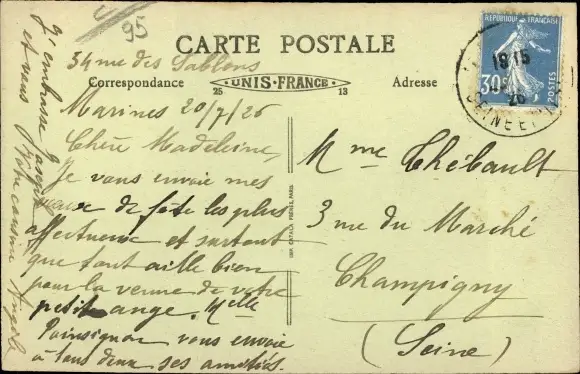 95
CARTE POSTALE
34 rue des Sablons
Correspondance
UNIS-FRANCE
25
13
Adresse
Marines 20/7/26
Chère Madeleine,
Je vous envoie mes
vœux de fête les plus
affectueux et surtout
que tout aille bien
pour la venue de votre
petit ange. Melle
Poinsignon vous envoie
à tous deux ses amitiés.
J'embrasse
et vous
Votre cousine
Angèle
IMP. CATALA FRÈRES, PARIS
RÉPUBLIQUE FRANÇAISE
30c
POSTES
18 15
26
SEINE ET
Mme Thébault
3 rue du Marché
Champigny
(Seine)